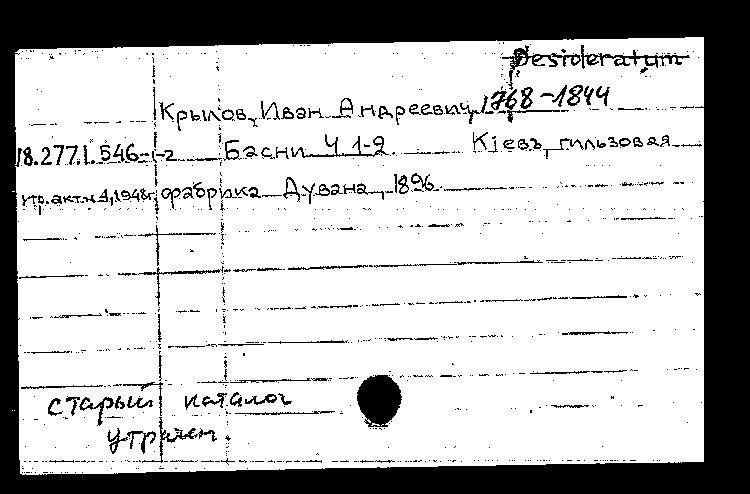 Desideratum
Крылов, Иван Андреевич, 1768-1844
18.277.1.546-1-2 Басни Ч 1-2. Кіевъ, гильзовая
утр. акт. н 4, 1948г, фабрика Дувана, 1896.
старый каталог
утрачен.